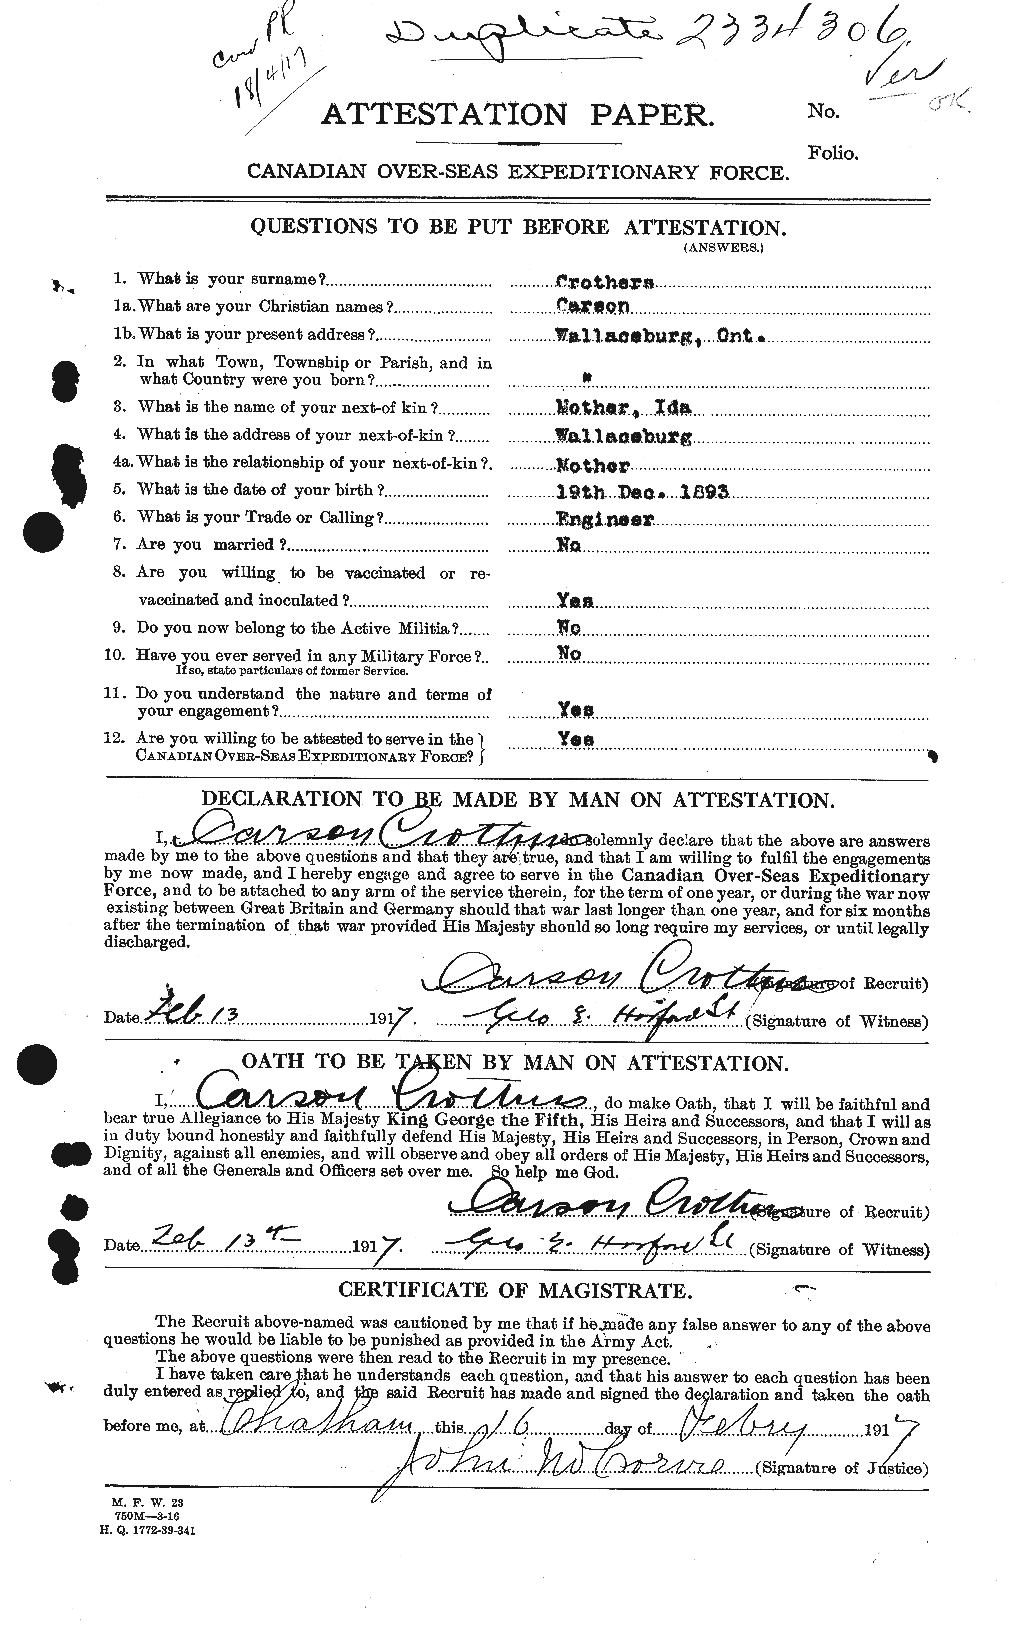 Duplicate 2334306
18/4/17
Ver
OK
ATTESTATION PAPER.
No.
Folio.
CANADIAN OVER-SEAS EXPEDITIONARY FORCE.
QUESTIONS TO BE PUT BEFORE ATTESTATION.
(ANSWERS.)
1. What is your surname? Crothers
1a. What are your Christian names? Carson
1b. What is your present address? Wallaceburg, Ont.
2. In what Town, Township or Parish, and in
what Country were you born? "
3. What is the name of your next-of kin? Mother, Ida
4. What is the address of your next-of-kin? Wallaceburg
4a. What is the relationship of your next-of-kin? Mother
5. What is the date of your birth? 19th Dec. 1893
6. What is your Trade or Calling? Engineer
7. Are you married? No
8. Are you willing to be vaccinated or re-
vaccinated and inoculated? Yes
9. Do you now belong to the Active Militia? No
10. Have you ever served in any Military Force? No
If so, state particulars of former Service.
11. Do you understand the nature and terms of
your engagement? Yes
12. Are you willing to be attested to serve in the } Yes
CANADIAN OVER-SEAS EXPEDITIONARY FORCE?
DECLARATION TO BE MADE BY MAN ON ATTESTATION.
I, Carson Crothers do solemnly declare that the above are answers
made by me to the above questions and that they are true, and that I am willing to fulfil the engagements
by me now made, and I hereby engage and agree to serve in the Canadian Over-Seas Expeditionary
Force, and to be attached to any arm of the service therein, for the term of one year, or during the war now
existing between Great Britain and Germany should that war last longer than one year, and for six months
after the termination of that war provided His Majesty should so long require my services, or until legally
discharged.
Carson Crothers (Signature of Recruit)
Date Feb 13 1917. Geo E. Horsford Lt (Signature of Witness)
OATH TO BE TAKEN BY MAN ON ATTESTATION.
I, Carson Crothers, do make Oath, that I will be faithful and
bear true Allegiance to His Majesty King George the Fifth, His Heirs and Successors, and that I will as
in duty bound honestly and faithfully defend His Majesty, His Heirs and Successors, in Person, Crown and
Dignity, against all enemies, and will observe and obey all orders of His Majesty, His Heirs and Successors,
and of all the Generals and Officers set over me. So help me God.
Carson Crothers (Signature of Recruit)
Date Feb 13th 1917. Geo E. Horsford Lt (Signature of Witness)
CERTIFICATE OF MAGISTRATE.
The Recruit above-named was cautioned by me that if he made any false answer to any of the above
questions he would be liable to be punished as provided in the Army Act.
The above questions were then read to the Recruit in my presence.
I have taken care that he understands each question, and that his answer to each question has been
duly entered as replied to, and the said Recruit has made and signed the declaration and taken the oath
before me, at Chatham this 16 day of Febry 1917
John (Signature of Justice)
M. F. W. 23
750M—3-16
H. Q. 1772-39-341